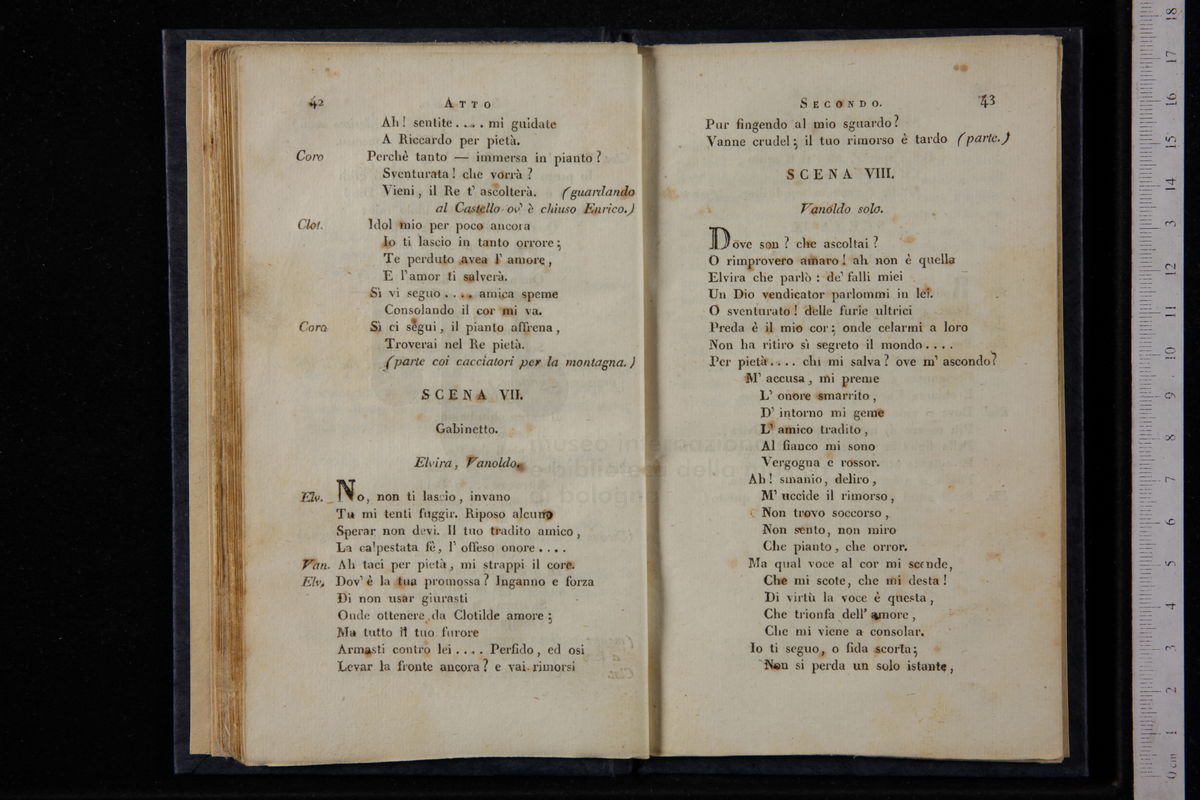 42
ATTO
Ah! sentite.... mi guidate
A Riccardo per pietà.
Coro Perchè tanto — immersa in pianto?
Sventurata! che vorrà?
Vieni, il Re t' ascolterà. (guardando
al Castello ov' è chiuso Enrico.)
Clot. Idol mio per poco ancora
Io ti lascio in tanto orrore;
Te perduto avea l' amore,
E l'amor ti salverà.
Sì vi seguo.... amica speme
Consolando il cor mi va.
Coro Sì ci segui, il pianto affrena,
Troverai nel Re pietà.
(parte coi cacciatori per la montagna.)
SCENA VII.
Gabinetto.
Elvira, Vanoldo.
Elv. No, non ti lascio, invano
Tu mi tenti fuggir. Riposo alcuno
Sperar non devi. Il tuo tradito amico,
La calpestata fè, l' offeso onore....
Van. Ah taci per pietà, mi strappi il core.
Elv. Dov' è la tua promossa? Inganno e forza
Di non usar giurasti
Onde ottenere da Clotilde amore;
Ma tutto il tuo furore
Armasti contro lei.... Perfido, ed osi
Levar la fronte ancora? e vai rimorsi
SECONDO.
43
Pur fingendo al mio sguardo?
Vanne crudel; il tuo rimorso è tardo (parte.)
SCENA VIII.
Vanoldo solo.
Dove son? che ascoltai?
O rimprovero amaro! ah non è quella
Elvira che parlò: de' falli miei
Un Dio vendicator parlommi in lei.
O sventurato! delle furie ultrici
Preda è il mio cor; onde celarmi a loro
Non ha ritiro sì segreto il mondo....
Per pietà.... chi mi salva? ove m' ascondo?
M' accusa, mi preme
L' onore smarrito,
D' intorno mi geme
L' amico tradito,
Al fianco mi sono
Vergogna e rossor.
Ah! smanio, deliro,
M' uccide il rimorso,
Non trovo soccorso,
Non sento, non miro
Che pianto, che orror.
Ma qual voce al cor mi scende,
Che mi scote, che mi desta!
Di virtù la voce è questa,
Che trionfa dell' amore,
Che mi viene a consolar.
Io ti seguo, o fida scorta;
Non si perda un solo istante,
museo internazionale
e biblioteca della
di bologna
0 cm 1 2 3 4 5 6 7 8 9 10 11 12 13 14 15 16 17 18